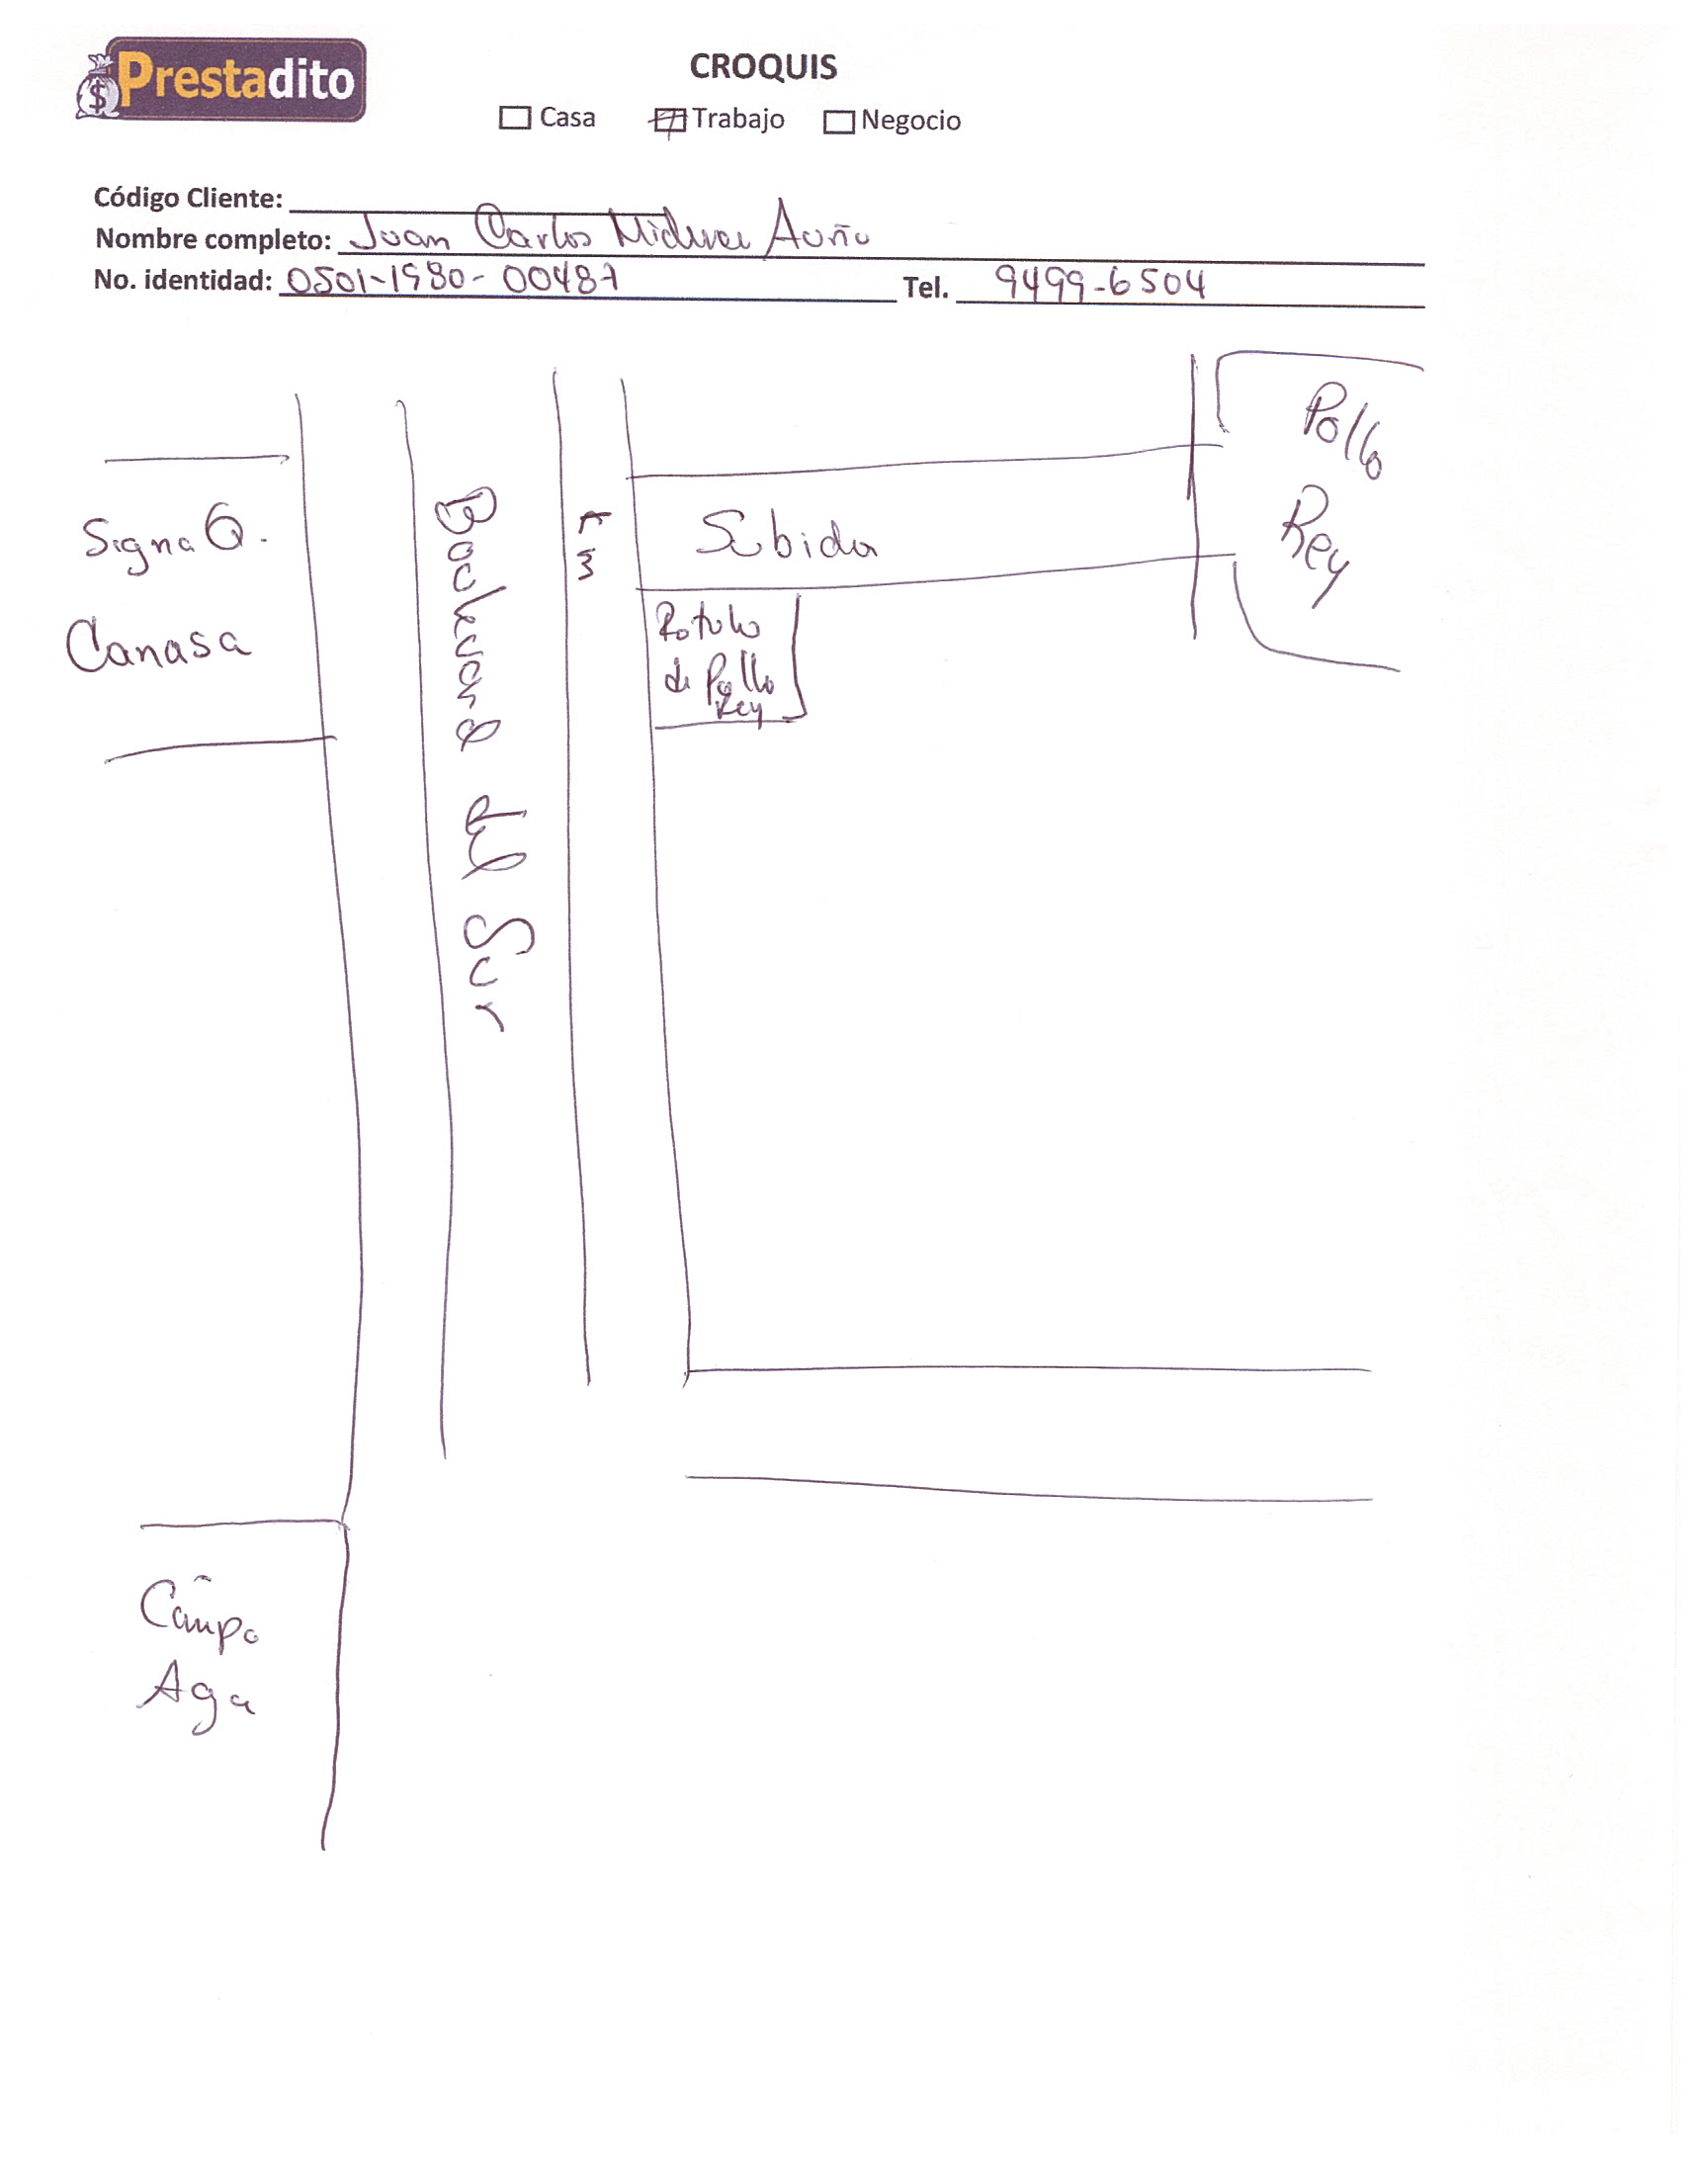 Prestadito
CROQUIS
Casa Trabajo Negocio
Código Cliente:
Nombre completo: Juan Carlos
No. identidad: 0501-1980-00487 Tel. 9499-6504
Pollo
Rey
Signa Q.
Canasa
Boulevard del Sur
Subida
Rotulo
de Pollo
Rey
Campo
Aga